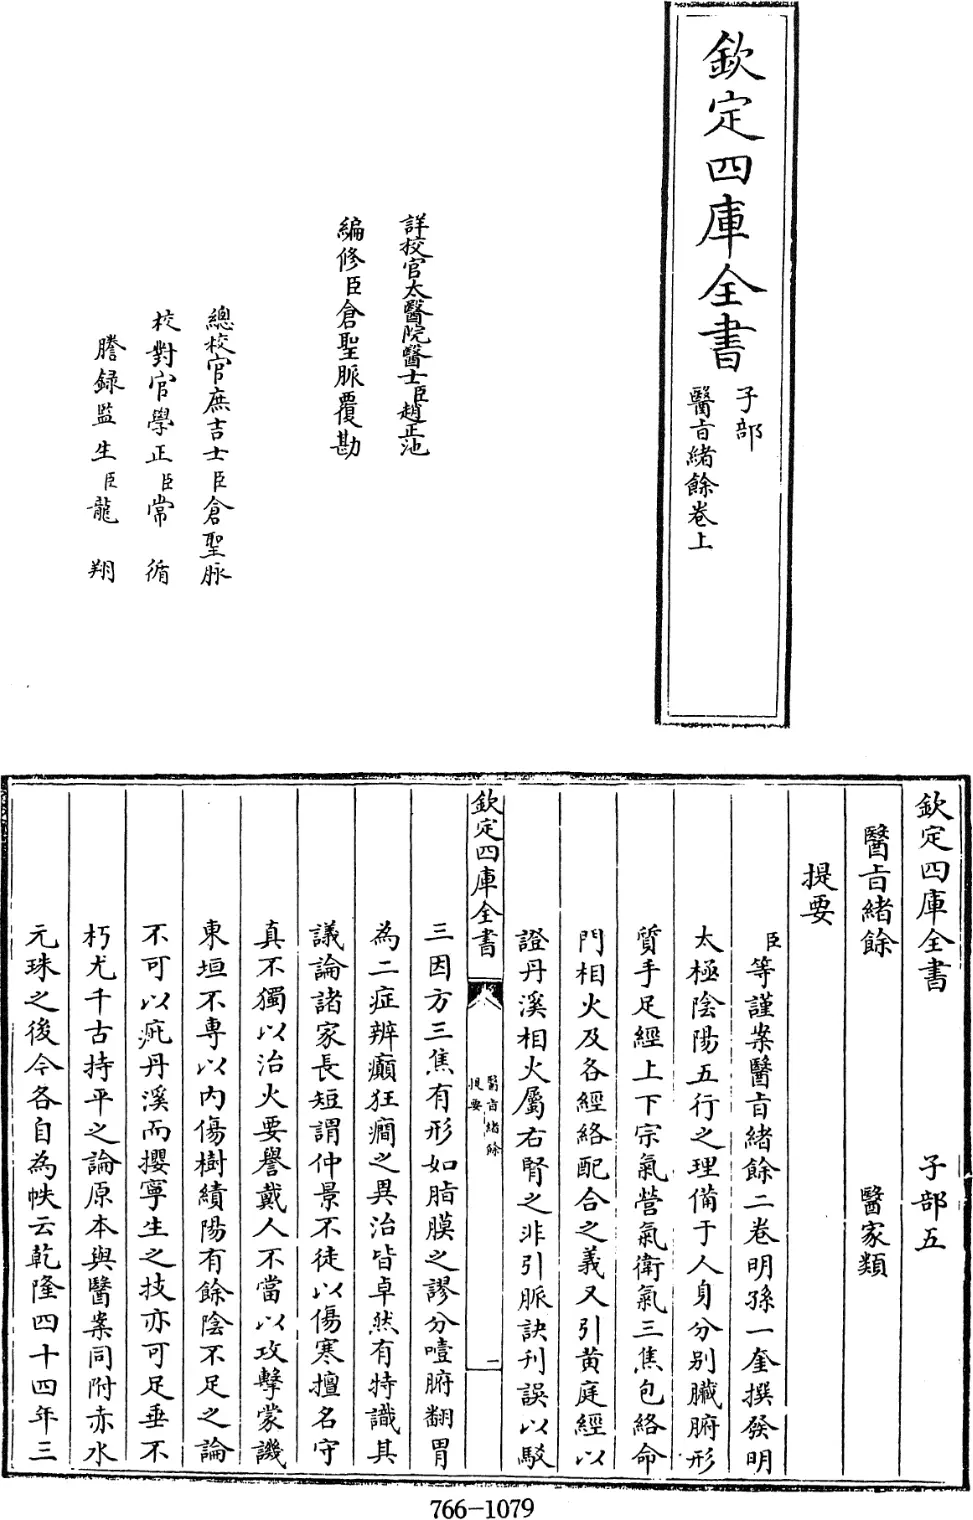 欽定四庫全書
子部
醫㫖緒餘卷上
詳校官太醫院醫士臣趙正池
編修臣倉聖脈覆勘
總校官庶吉士臣倉聖脈
校對官學正臣常循
謄録監生臣龍翔
欽定四庫全書 子部五
醫㫖緒餘 醫家類
提要
臣等謹案醫㫖緒餘二卷明孫一奎撰發明
太極陰陽五行之理備于人身分别臟腑形
質手足經上下宗氣營氣衛氣三焦包絡命
門相火及各經絡配合之義又引黄庭經以
證丹溪相火屬右腎之非引脈訣刋誤以駁
欽定四庫全書
醫㫖緒餘
提要
一
三因方三焦有形如脂膜之謬分噎膈翻胃
為二症辨癲狂癇之異治皆卓然有特識其
議論諸家長短謂仲景不徒以傷寒擅名守
真不獨以治火要譽戴人不當以攻擊蒙譏
東垣不專以内傷樹績陽有餘陰不足之論
不可以疵丹溪而攖寧生之技亦可足垂不
朽尤千古持平之論原本與醫案同附赤水
元珠之後今各自為帙云乾隆四十四年三
766-1079